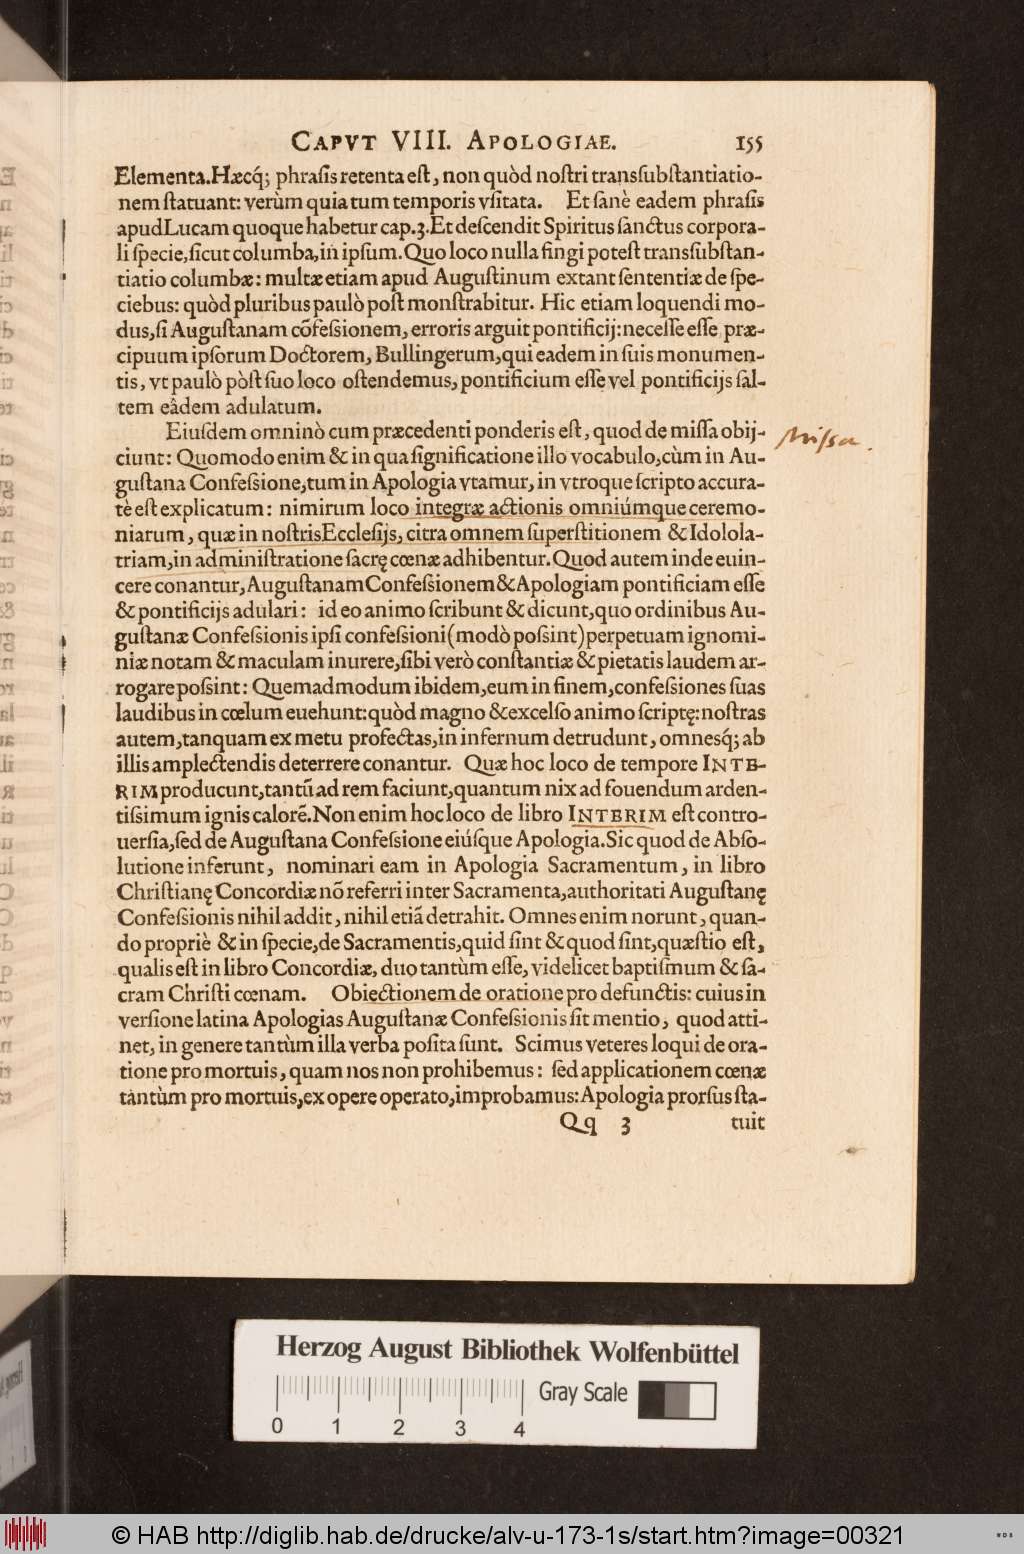 CAPVT VIII. APOLOGIAE. 155
Elementa. Hæcq́; phraſis retenta eſt, non quòd noſtri transſubſtantiatio-
nem ſtatuant: verùm quia tum temporis vſitata. Et ſanè eadem phraſis
apud Lucam quoque habetur cap. 3. Et deſcendit Spiritus ſanctus corpora-
li ſpecie, ſicut columba, in ipſum. Quo loco nulla fingi poteſt transſubſtan-
tiatio columbæ: multæ etiam apud Auguſtinum extant ſententiæ de ſpe-
ciebus: quòd pluribus paulò poſt monſtrabitur. Hic etiam loquendi mo-
dus, ſi Auguſtanam cõfeſsionem, erroris arguit pontificij: neceſſe eſſe præ-
cipuum ipſorum Doctorem, Bullingerum, qui eadem in ſuis monumen-
tis, vt paulò pòſt ſuo loco oſtendemus, pontificium eſſe vel pontificijs ſal-
tem eâdem adulatum.
Eiuſdem omninò cum præcedenti ponderis eſt, quod de miſſa obij-
Missa.
ciunt: Quomodo enim & in qua ſignificatione illo vocabulo, cùm in Au-
guſtana Confeſsione, tum in Apologia vtamur, in vtroque ſcripto accura-
tè eſt explicatum: nimirum loco integræ actionis omniúmque ceremo-
niarum, quæ in noſtris Eccleſijs, citra omnem ſuperſtitionem & Idolola-
triam, in adminiſtratione ſacrę cœnæ adhibentur. Quod autem inde euin-
cere conantur, Auguſtanam Confeſsionem & Apologiam pontificiam eſſe
& pontificijs adulari: id eo animo ſcribunt & dicunt, quo ordinibus Au-
guſtanæ Confeſsionis ipſi confeſsioni (modò poſsint) perpetuam ignomi-
niæ notam & maculam inurere, ſibi verò conſtantiæ & pietatis laudem ar-
rogare poſsint: Quemadmodum ibidem, eum in finem, confeſsiones ſuas
laudibus in cœlum euehunt: quòd magno & excelſo animo ſcriptę: noſtras
autem, tanquam ex metu profectas, in infernum detrudunt, omnesq́; ab
illis amplectendis deterrere conantur. Quæ hoc loco de tempore INTE-
RIM producunt, tantũ ad rem faciunt, quantum nix ad fouendum arden-
tiſsimum ignis calorẽ. Non enim hoc loco de libro INTERIM eſt contro-
uerſia, ſed de Auguſtana Confeſsione eiúſque Apologia. Sic quod de Abſo-
lutione inferunt, nominari eam in Apologia Sacramentum, in libro
Chriſtianę Concordiæ nõ referri inter Sacramenta, authoritati Auguſtanę
Confeſsionis nihil addit, nihil etiã detrahit. Omnes enim norunt, quan-
do propriè & in ſpecie, de Sacramentis, quid ſint & quod ſint, quæſtio eſt,
qualis eſt in libro Concordiæ, duo tantùm eſſe, videlicet baptiſmum & ſa-
cram Chriſti cœnam. Obiectionem de oratione pro defunctis: cuius in
verſione latina Apologias Auguſtanæ Confeſsionis ſit mentio, quod atti-
net, in genere tantùm illa verba poſita ſunt. Scimus veteres loqui de ora-
tione pro mortuis, quam nos non prohibemus: ſed applicationem cœnæ
tantùm pro mortuis, ex opere operato, improbamus: Apologia prorſus ſta-
Qq 3 tuit
Herzog August Bibliothek Wolfenbüttel
Gray Scale
0 1 2 3 4
© HAB http://diglib.hab.de/drucke/alv-u-173-1s/start.htm?image=00321